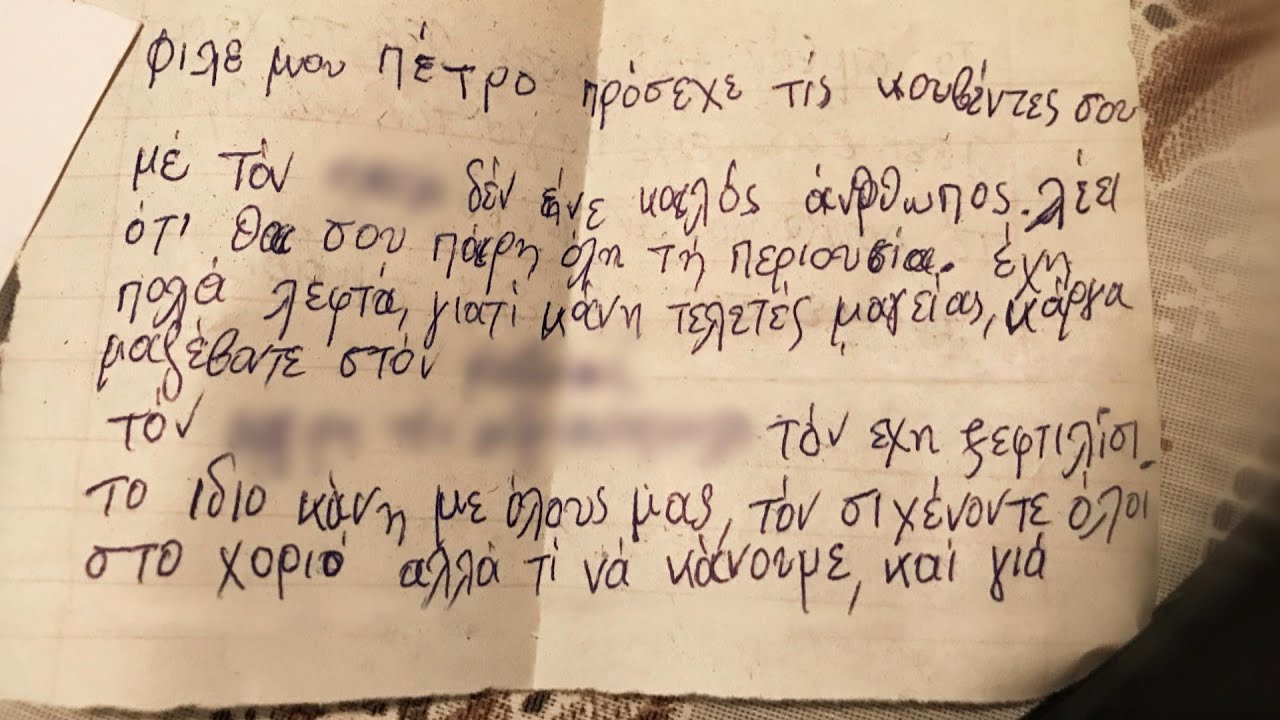 φιλε μου Πέτρο πρόσεχε τίς κουβέντες σου
μέ τόν δέν είνε καλός άνθρωπος. λέει
ότι θα σου πάρη όλη τή περιουσία. έχη
πολά λεφτά, γιατί κάνη τελετές μαγείας, κάργα
μαζέβοντε στόν
τόν τόν εχη ξεφτιλίσι.
το ιδιο κάνη με όλους μας, τόν σιχένοντε όλοι
στο χοριό αλλά τί νά κάνουμε, καί γιά